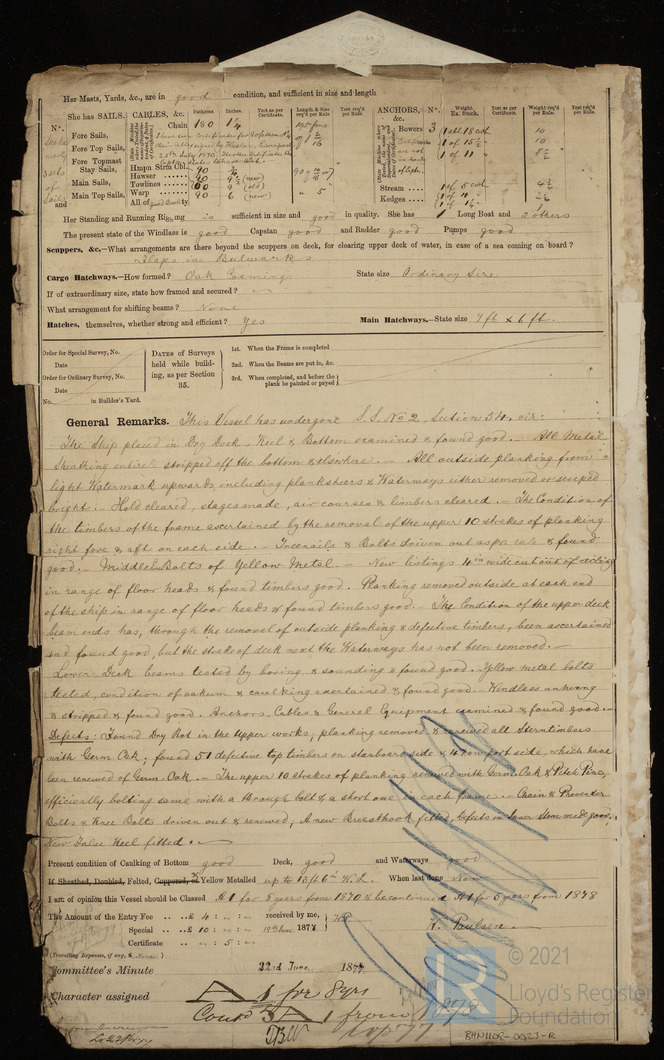 Her Masts, Yards, &c., are in good condition, and sufficient in size and length
She has SAILS.
CABLES, &c.
Fathoms.
Inches.
Test as per Certificate.
Length & Size req'd per Rule
Test req'd per Rule.
ANCHORS, &c.
No.
Weight. Ex. Stock.
Test as per Certificate.
Weight req'd per Rule.
Test req'd per Rule.
No.
Fore Sails,
Fore Top Sails,
Fore Topmast Stay Sails,
Main Sails,
Main Top Sails,
and
Chain 180 1 1/4
Hmpn Strm Cbl 90
Hawser 90 (new)
Towlines 9 (old)
Warp 90 6 (new)
All of good quality
Bowers 3
Stream
Kedges
Her Standing and Running Rigging is sufficient in size and good in quality. She has 1 Long Boat and 2 others
The present state of the Windlass is good Capstan good and Rudder good Pumps good
Scuppers, &c.—What arrangements are there beyond the scuppers on deck, for clearing upper deck of water, in case of a sea coming on board?
Flaps in Bulwarks
Cargo Hatchways.—How formed? Oak Coamings State size Ordinary Size
If of extraordinary size, state how framed and secured?
What arrangement for shifting beams? None
Hatches, themselves, whether strong and efficient? Yes Main Hatchways.—State size 7 ft x 6 ft.
Order for Special Survey, No.
Date
Order for Ordinary Survey, No.
Date
No. in Builder's Yard.
DATES of Surveys held while building, as per Section 35.
1st. When the Frame is completed
2nd. When the Beams are put in, &c.
3rd. When completed, and before the plank be painted or payed
General Remarks. This Vessel has undergone S.S. No 2, Section 34, viz:
The Ship placed in Dry Dock - Keel & Bottom examined & found good. - All Metal
Sheathing entire stripped off the bottom & elsewhere. - All outside planking from
light Watermark upwards including planksheers & Waterways either removed or scraped
bright. - Hold cleared, stages made, air courses & limbers cleared. - The Condition of
the timbers of the frame ascertained by the removal of the upper 10 strakes of planking
right fore & aft on each side. - Treenails & Bolts driven out as per rule & found
good. - Middle Bolts of Yellow Metal. - New listings 4 in wide cut out of ceiling
in range of floor heads & found timbers good. Planking removed outside at each end
of the ship in range of floor heads & found timbers good. - The Condition of the upper deck
beam ends has, through the removal of outside planking & defective timbers, been ascertained
and found good, but the strake of deck next the Waterways has not been removed. -
Lower Deck beams tested by boring & sounding & found good. - Yellow metal bolts
tested, condition of oakum & caulking ascertained & found good. - Windlass unhung
& stripped & found good. Anchors, Cables & General Equipment examined & found good. -
Defects: Found Dry Rot in the Upper works, planking removed & renewed all Sterntimbers
with Germ. Oak; found 51 defective top timbers on starboard side & 47 on port side, which have
been renewed of Germ. Oak. - The upper 10 strakes of planking renewed with Germ. Oak & Pitch Pine,
efficiently bolting same with a through bolt & a short one in each frame - Chain & Preventer
Bolts & Knee Bolts driven out & renewed, A new Breasthook fitted, Defects in Inner Stem made good,
New False Keel fitted. -
Present condition of Caulking of Bottom good Deck, good and Waterways good
If Sheathed, Doubled, Felted, Coppered, or Yellow Metalled up to 13ft 6in W.L. When last done Now
I am of opinion this Vessel should be Classed A1 for 8 years from 1870 & be continued A1 for 5 years from 1878
The Amount of the Entry Fee .. £ 4 : " : " received by me,
Special .. £ 10 : " : " 19th June 1877
Certificate .. " : 5 : "
(Travelling Expenses, if any, £ None)
K. Paulsen. -
Committee's Minute 22nd June 1877
Character assigned A 1 for 8 yrs
Cont 5 A 1 from 1878
© 2021
Lloyd's Register
Foundation
BHN1108-0023-R